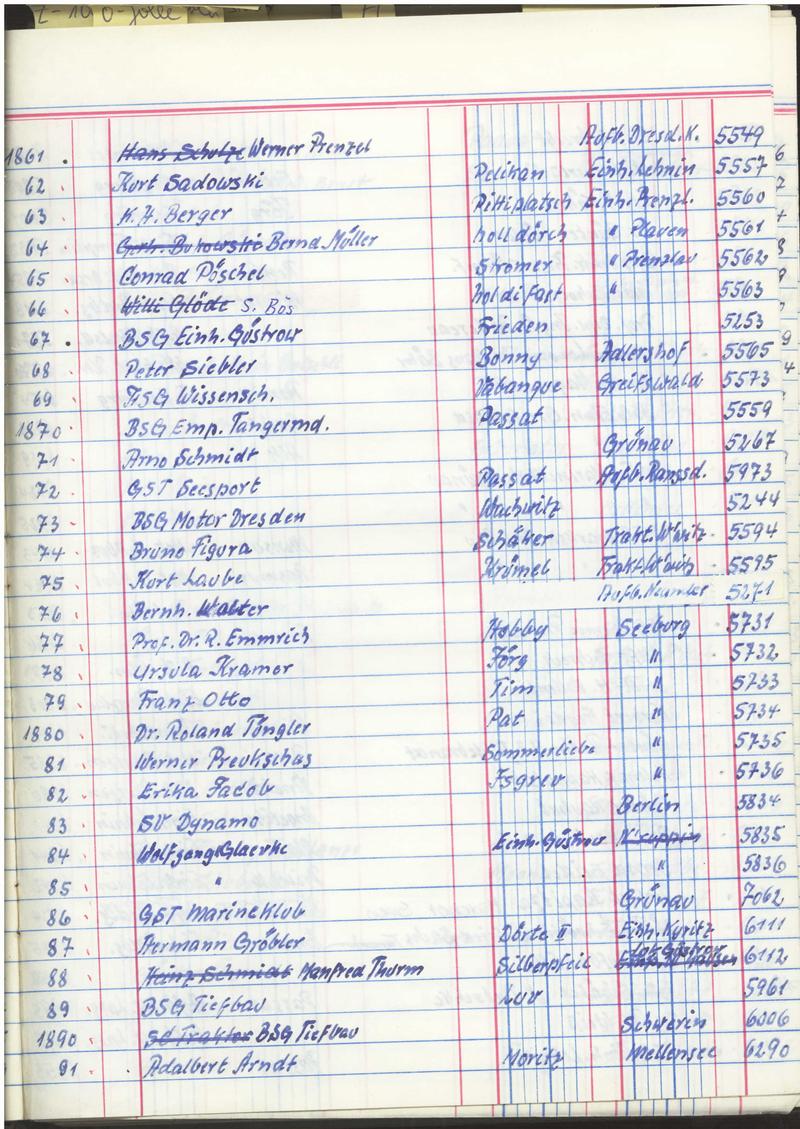 1861 . Hans Schulze Werner Prenzel Aufb. Dresd. K. 5549
62 Kurt Sadowski Pelikan Einh. Lehnin 5557
63 K. H. Berger Pittiplatsch Einh. Prenzl. 5560
64 Gerh. Bukowski Bernd Müller holl dörch " Plauen 5561
65 Conrad Pöschel Stromer " Prenzlau 5562
66 Willi Glöde S. Bös hol di fast " 5563
67 . BSG Einh. Güstrow Frieden 5253
68 Peter Siebler Bonny Adlershof 5565
69 HSG Wissensch. Vabanque Greifswald 5573
1870 BSG Emp. Tangermd. Passat 5559
71 Arno Schmidt Grünau 5267
72 GST Seesport Passat Aufb. Ranssd. 5973
73 BSG Motor Dresden Wachwitz 5244
74 Bruno Figura Schäker Trakt. W'witz 5594
75 Kurt Laube Krümel Trakt. W'witz 5595
76 Bernh. Walter Aufb. 5271
77 Prof. Dr. R. Emmrich Hobby Seeburg 5731
78 Ursula Kramer Jörg " 5732
79 Franz Otto Tim " 5733
1880 Dr. Roland Töngler Pat " 5734
81 Werner Preukschas Sommerliebe " 5735
82 Erika Jadob " 5736
83 SV Dynamo Berlin 5834
84 Wolfgang Glaevke Einh. Güstrow N'ruppin 5835
85 " " 5836
86 GST Marineklub Grünau 7062
87 Hermann Gröbler Dörte II Einh. Kyritz 6111
88 Heinz Schmidt Manfred Thurm Silberpfeil Lok Güstrow 6112
89 BSG Tiefbau Luv 5961
1890 SG Traktor BSG Tiefbau Schwerin 6006
91 Adalbert Arndt Moritz Mellensee 6290